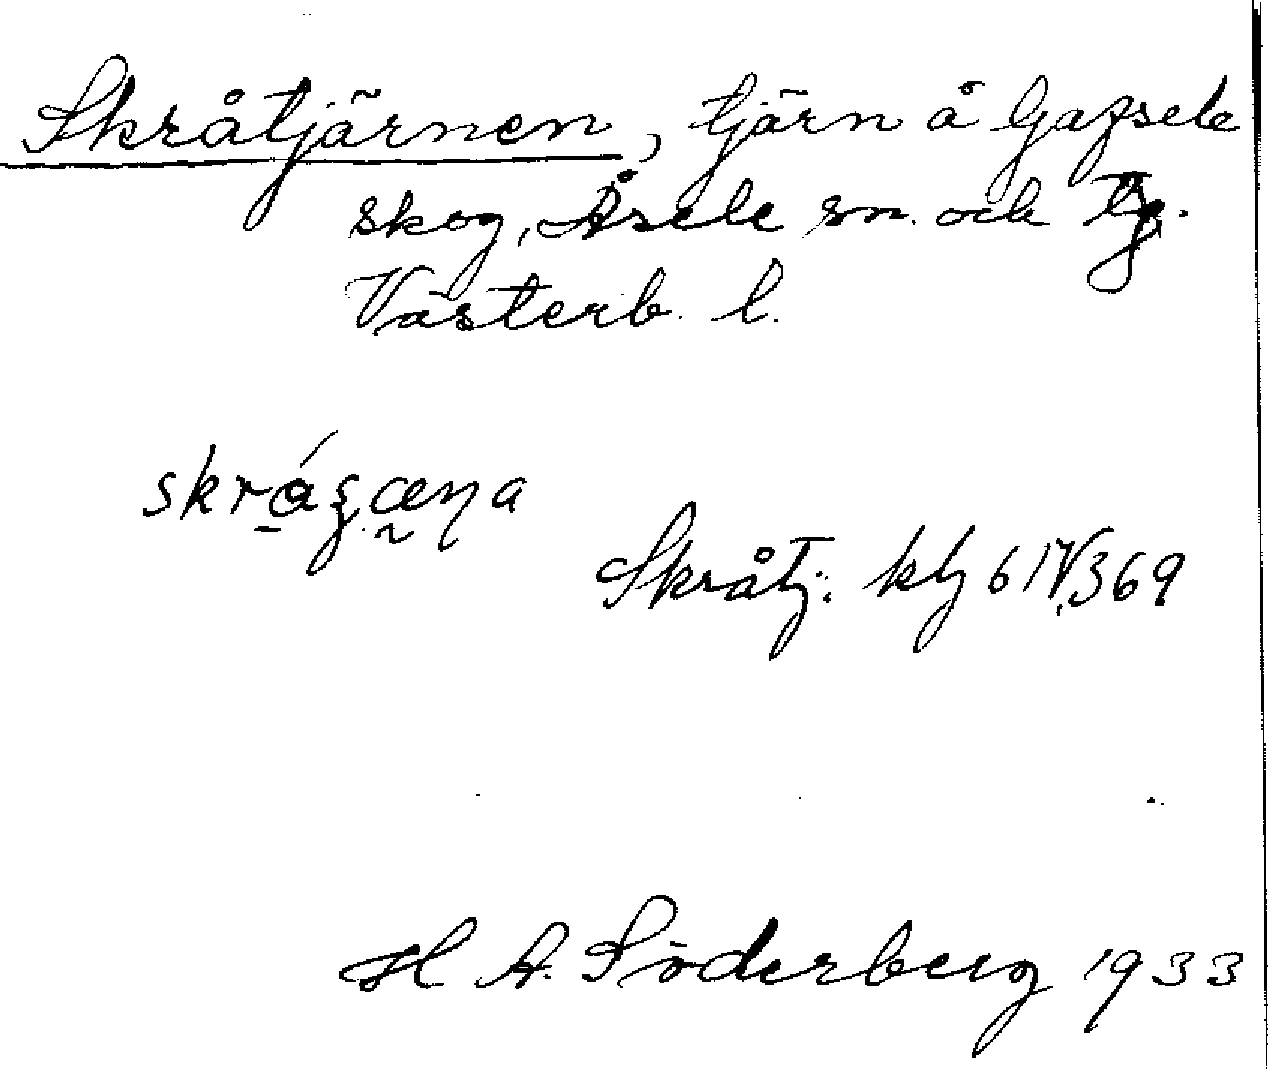 Skråtjärnen, tjärn å Gafsele
skog, Åsele sn. och tg.
Västerb. l.
Skråtj: ktj 61 V, 369
H A. Söderberg 1933